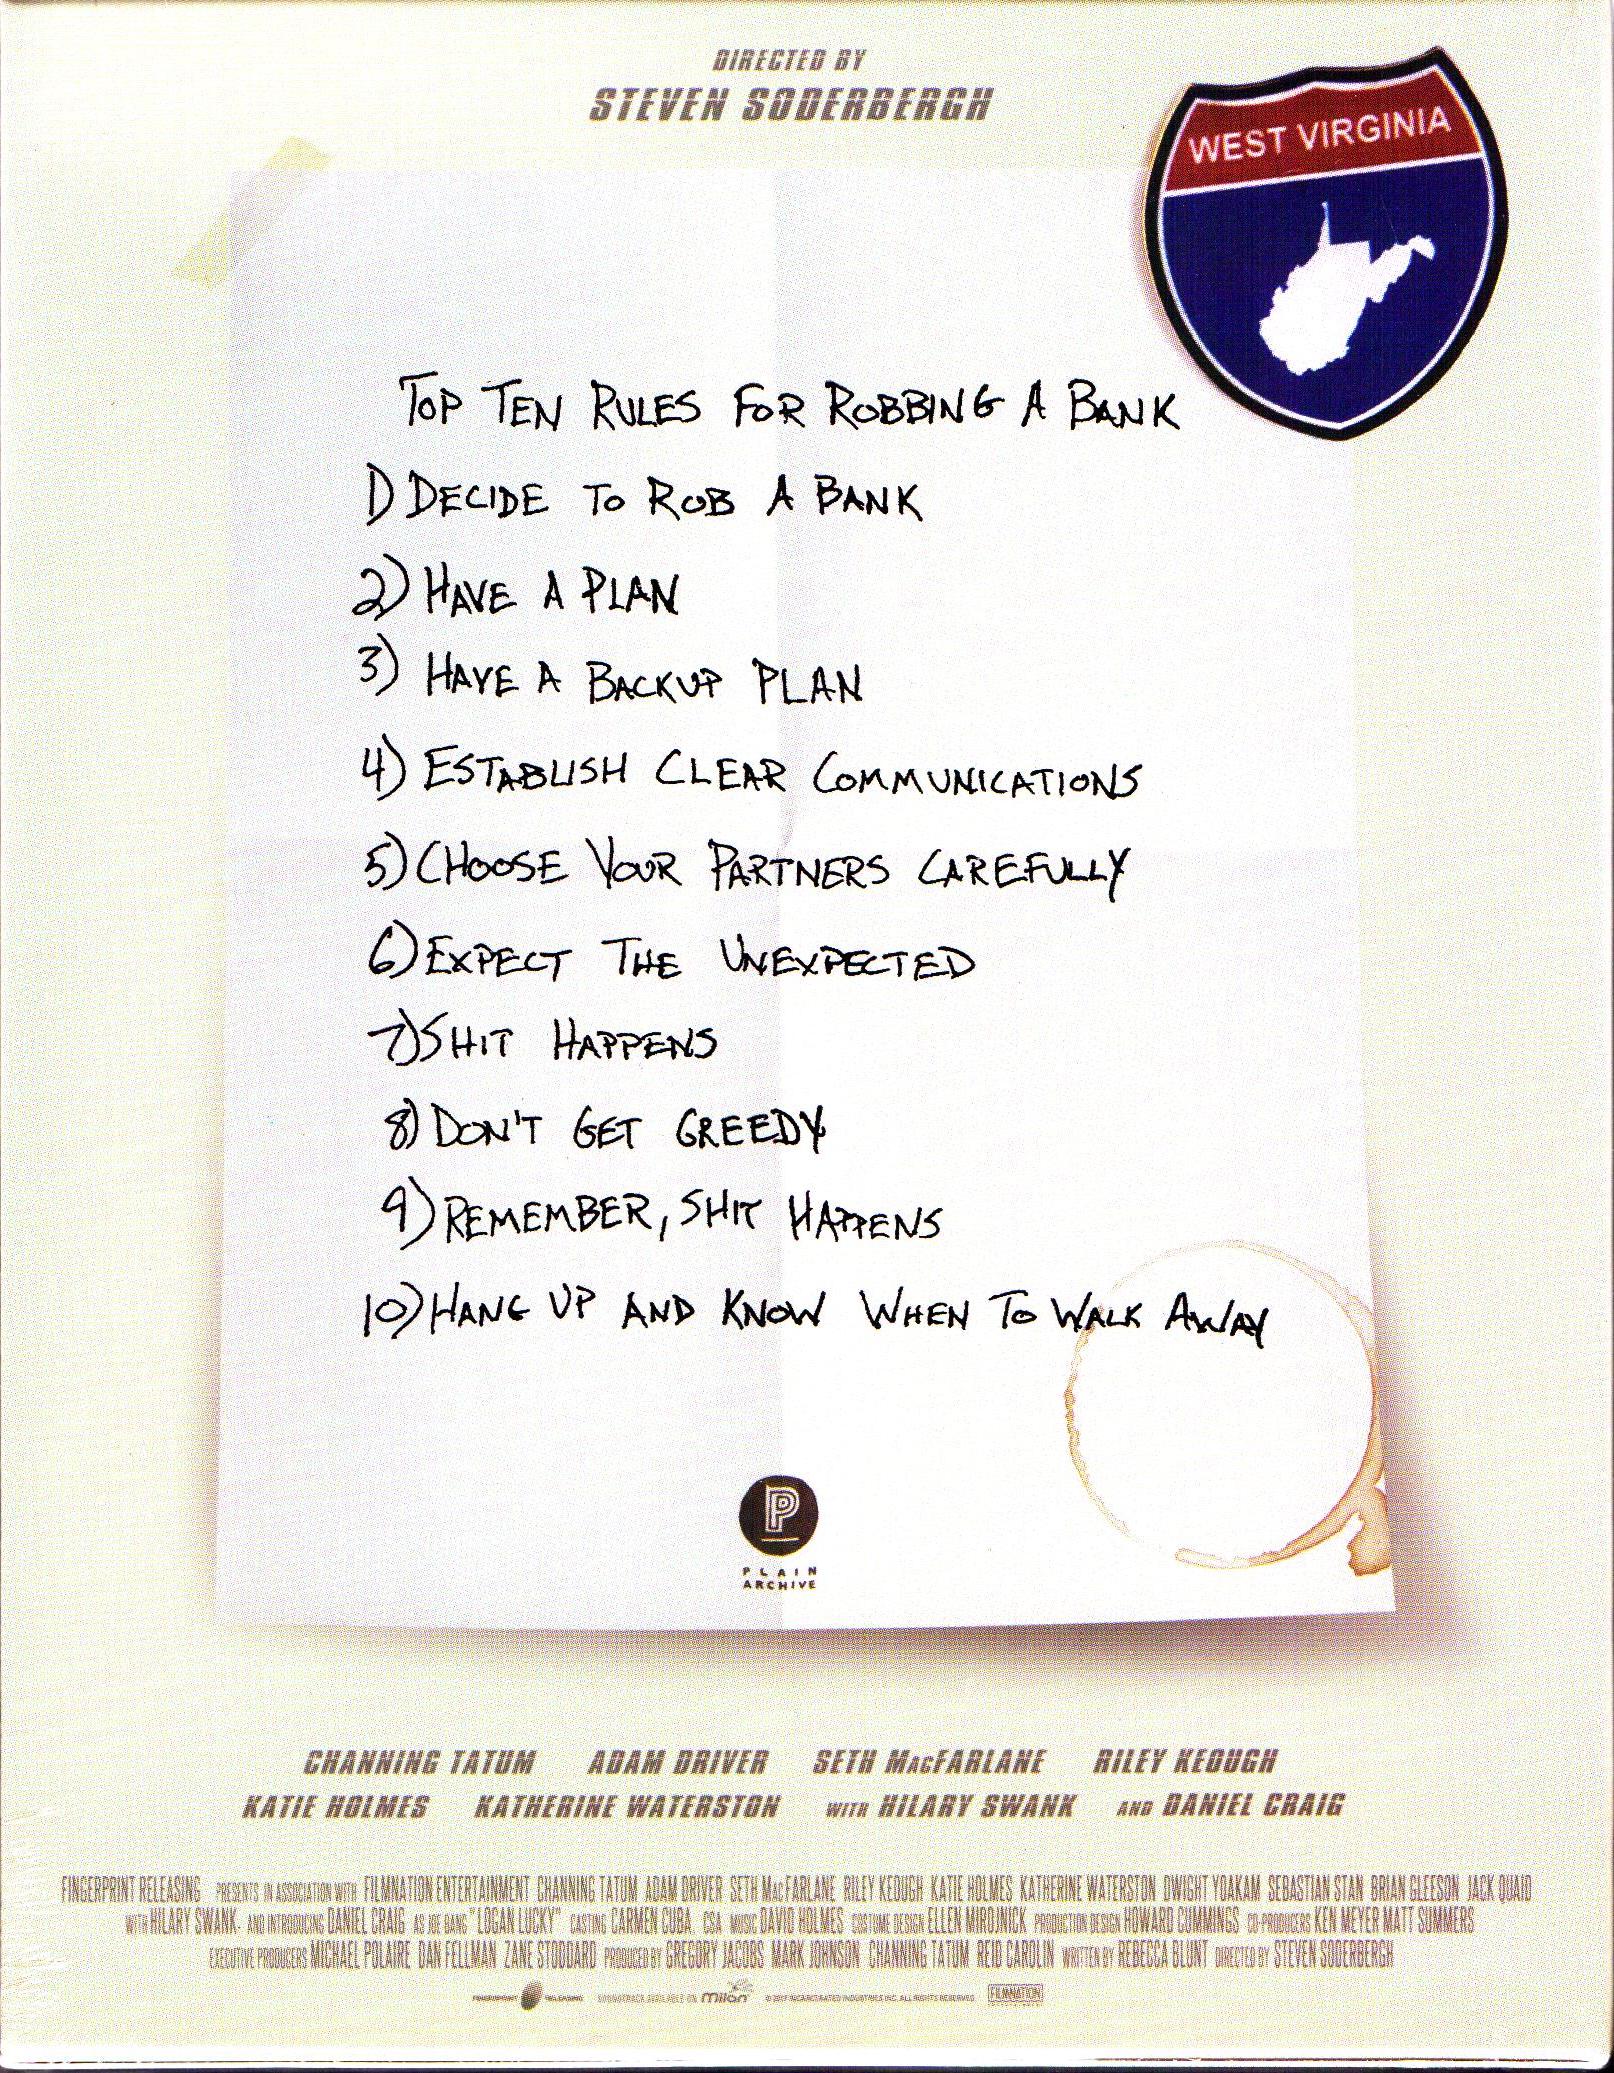 DIRECTED BY
STEVEN SODERBERGH
WEST VIRGINIA
TOP TEN RULES FOR ROBBING A BANK
1) DECIDE TO ROB A BANK
2) HAVE A PLAN
3) HAVE A BACKUP PLAN
4) ESTABLISH CLEAR COMMUNICATIONS
5) CHOOSE YOUR PARTNERS CAREFULLY
6) EXPECT THE UNEXPECTED
7) SHIT HAPPENS
8) DON'T GET GREEDY
9) REMEMBER, SHIT HAPPENS
10) HANG UP AND KNOW WHEN TO WALK AWAY
P
PLAIN
ARCHIVE
CHANNING TATUM ADAM DRIVER SETH MACFARLANE RILEY KEOUGH
KATIE HOLMES KATHERINE WATERSTON WITH HILARY SWANK AND DANIEL CRAIG
FINGERPRINT RELEASING PRESENTS IN ASSOCIATION WITH FILMNATION ENTERTAINMENT CHANNING TATUM ADAM DRIVER SETH MACFARLANE RILEY KEOUGH KATIE HOLMES KATHERINE WATERSTON DWIGHT YOAKAM SEBASTIAN STAN BRIAN GLEESON JACK QUAID
WITH HILARY SWANK AND INTRODUCING DANIEL CRAIG AS JOE BANG "LOGAN LUCKY" CASTING CARMEN CUBA, CSA MUSIC DAVID HOLMES COSTUME DESIGN ELLEN MIROJNICK PRODUCTION DESIGN HOWARD CUMMINGS CO-PRODUCERS KEN MEYER MATT SUMMERS
EXECUTIVE PRODUCERS MICHAEL POLAIRE DAN FELLMAN ZANE STODDARD PRODUCED BY GREGORY JACOBS MARK JOHNSON CHANNING TATUM REID CAROLIN WRITTEN BY REBECCA BLUNT DIRECTED BY STEVEN SODERBERGH
FINGERPRINT RELEASING SOUNDTRACK AVAILABLE ON milan © 2017 INCARCERATED INDUSTRIES INC. ALL RIGHTS RESERVED. FILMNATION